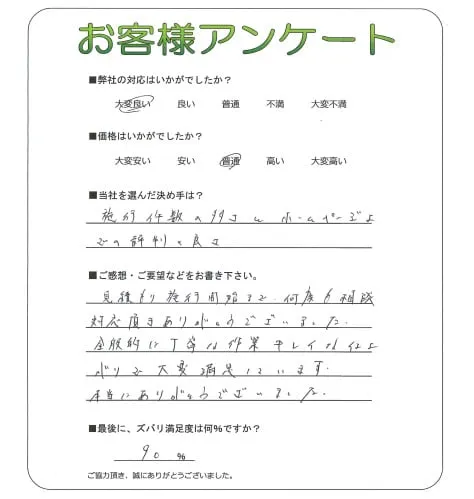 お客様アンケート
■弊社の対応はいかがでしたか?
大変良い 良い 普通 不満 大変不満
■価格はいかがでしたか?
大変安い 安い 普通 高い 大変高い
■当社を選んだ決め手は?
施行件数の多さとホームページ上
での評判の良さ
■ご感想・ご要望などをお書き下さい。
見積もり施行開始まで、何度も相談
対応頂きありがとうございました。
全般的に丁寧な作業キレイな仕上
がりで大変満足しています。
本当にありがとうございました。
■最後に、ズバリ満足度は何%ですか?
90 %
ご協力頂き、誠にありがとうございました。